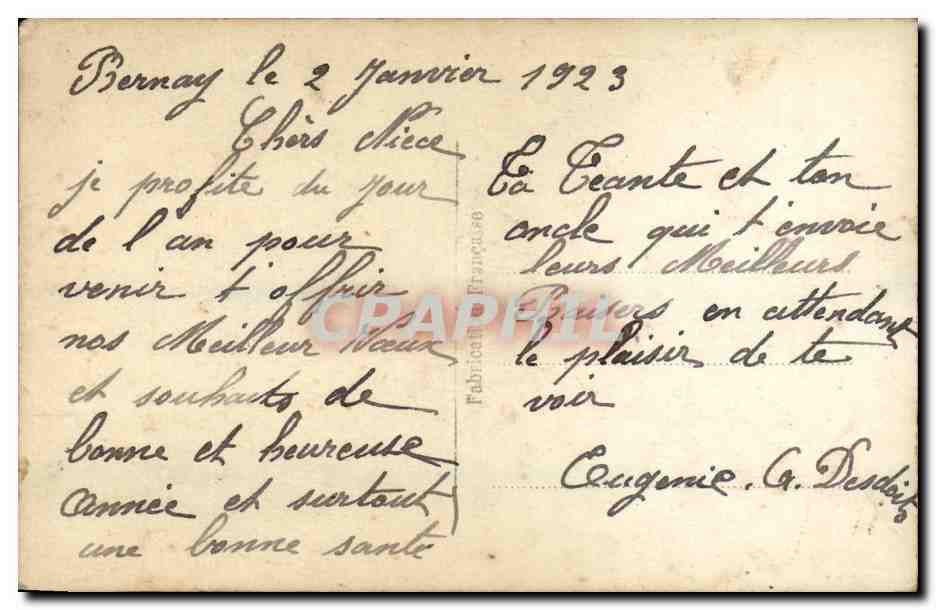 Bernay le 2 Janvier 1923
Chèrs Nièce
je profite du jour
de l an pour
venir t offrir
nos Meilleur Voeux
et souhaits de
bonne et heureuse
année et surtout
une bonne santé
Ta Teante et ton
oncle qui t'envoie
leurs Meilleurs
Baisers en attendant
le plaisir de te
voir
Eugenie. G. Desdoits
Fabrication Française
CRAPHIL